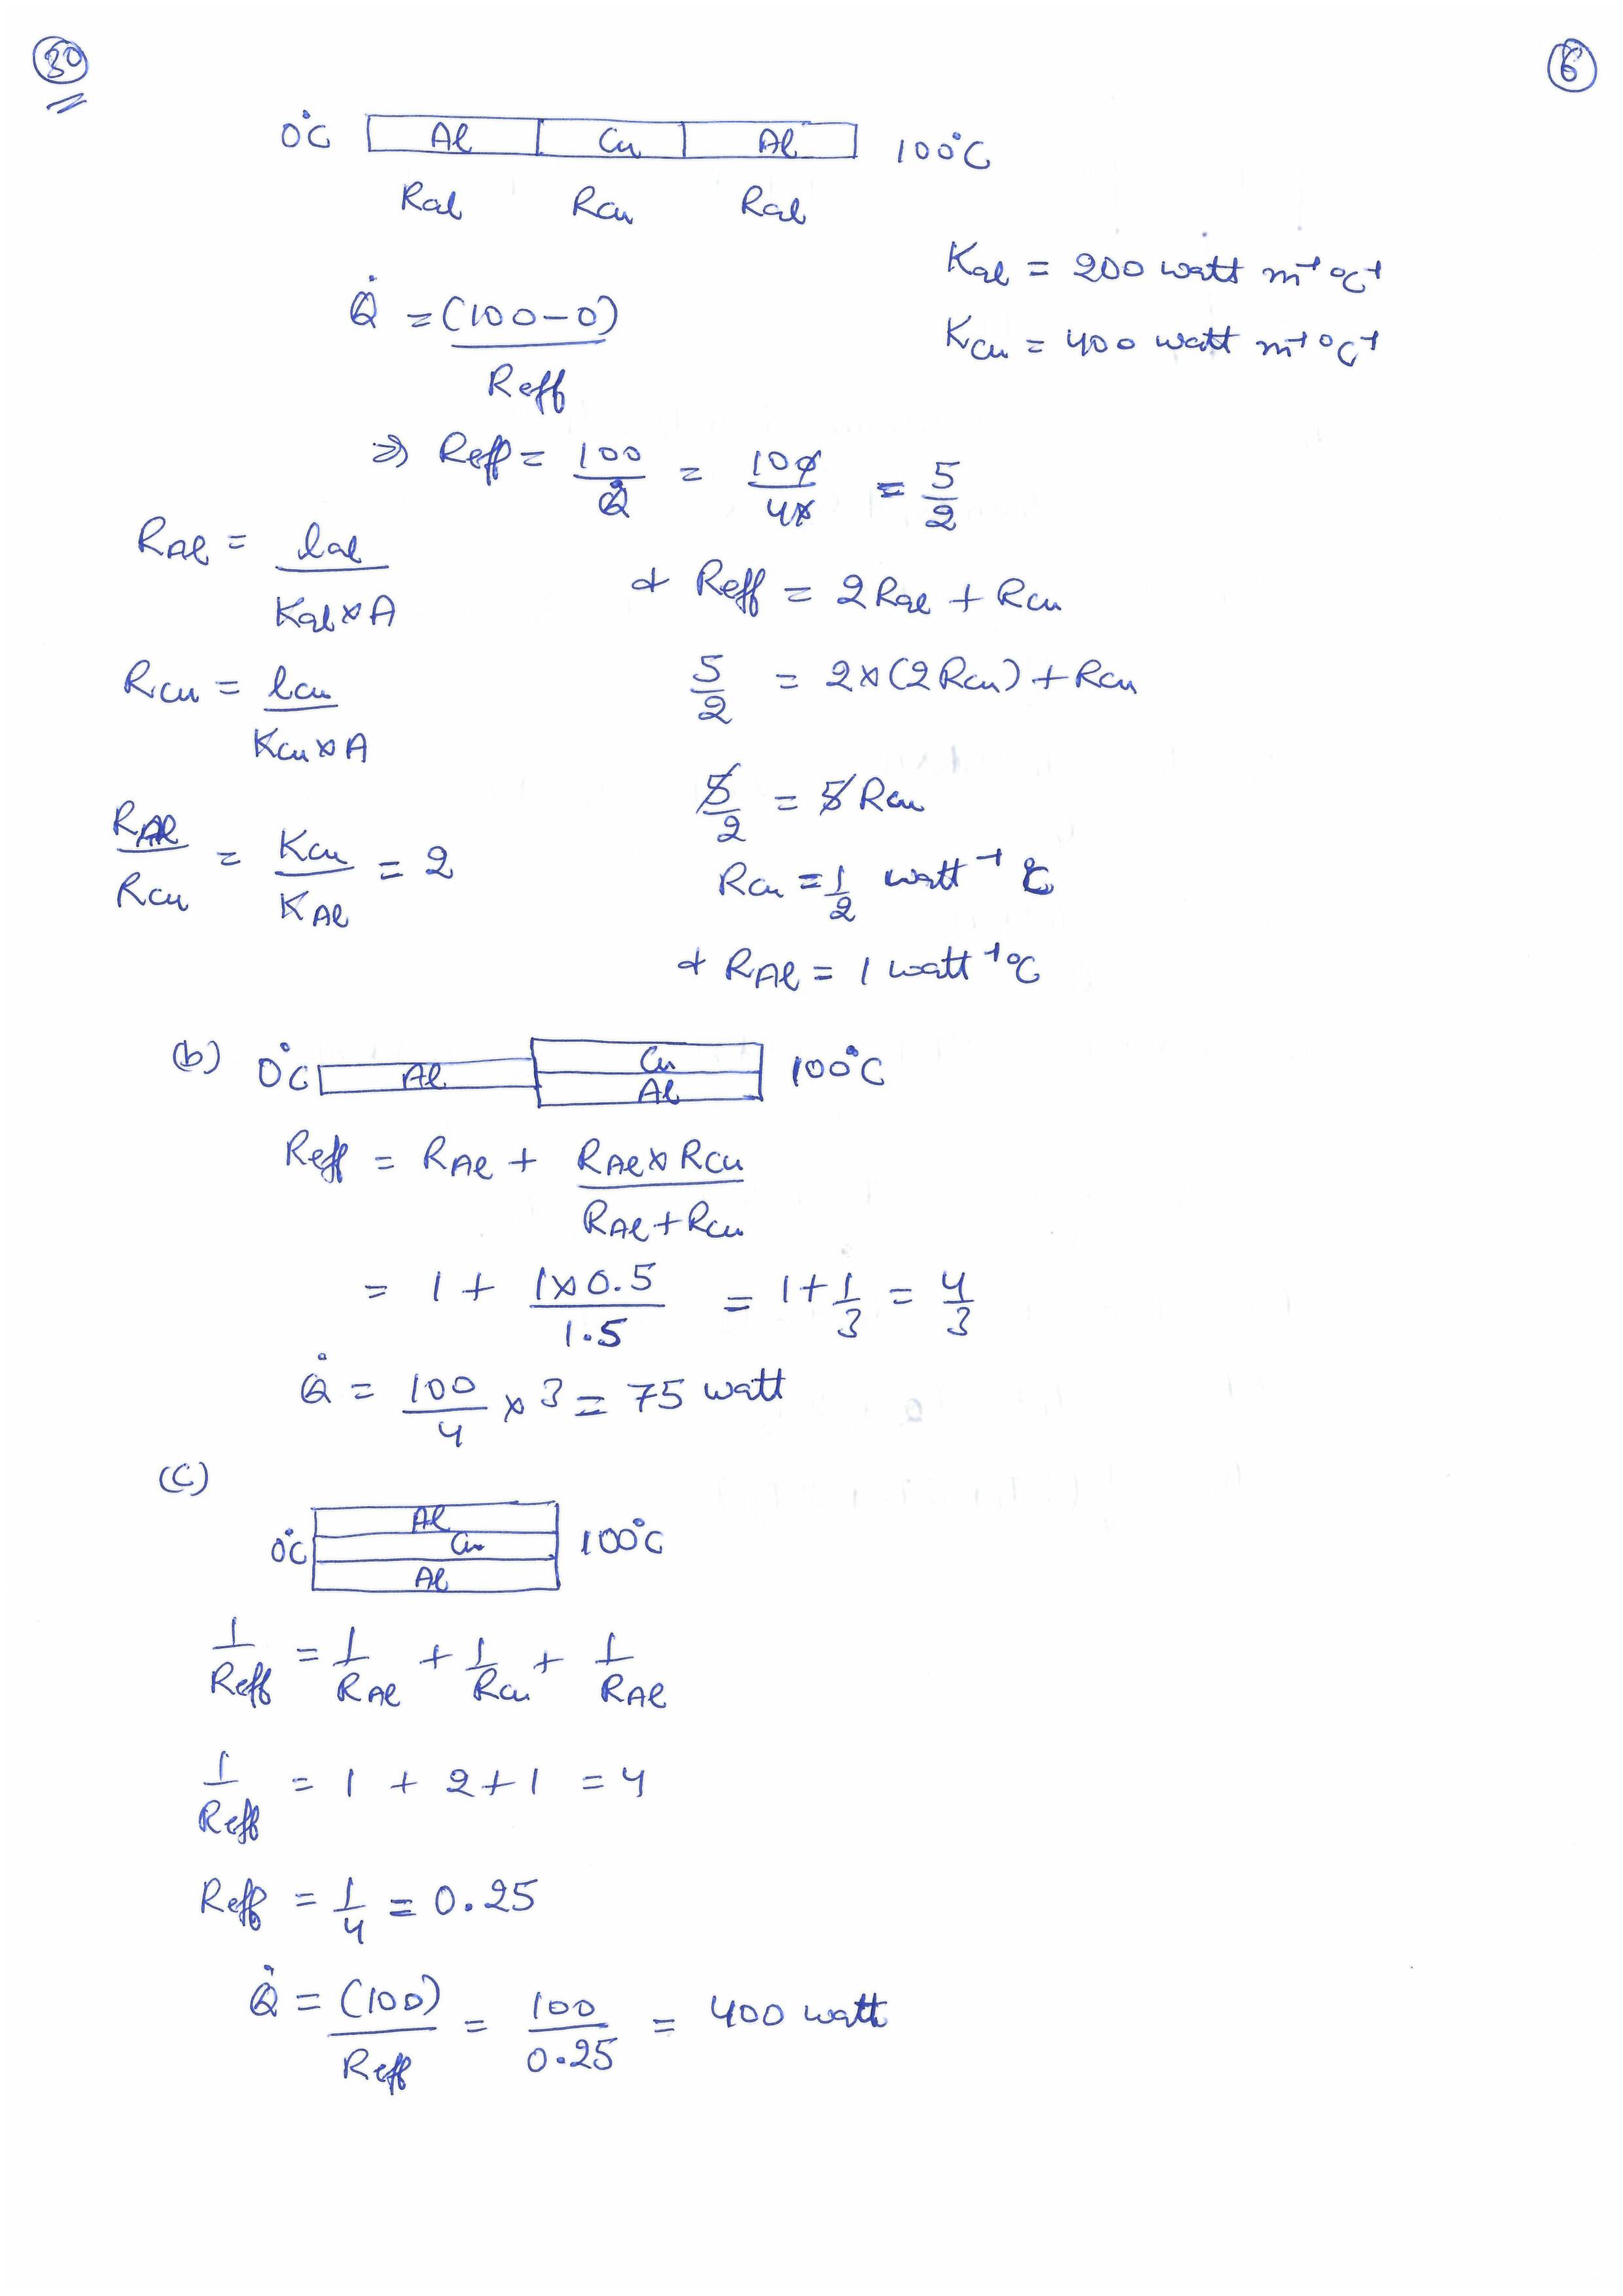 30 6
0°C Al Cu Al 100°C
Ral Rcu Ral
Kal = 200 watt m⁻¹ °C⁻¹
Q̇ = (100-0) / Reff
Kcu = 400 watt m⁻¹ °C⁻¹
⇒ Reff = 100/Q̇ = 100/40 = 5/2
RAl = lal / Kal×A
& Reff = 2Ral + Rcu
Rcu = lcu / Kcu×A
5/2 = 2×(2Rcu) + Rcu
5/2 = 5Rcu
RAl/Rcu = Kcu/KAl = 2
Rcu = 1/2 watt⁻¹ °C
& RAl = 1 watt⁻¹ °C
(b) 0°C Al Cu 100°C
Al
Reff = RAl + RAl×Rcu / RAl+Rcu
= 1 + 1×0.5/1.5 = 1+1/3 = 4/3
Q̇ = 100/4 × 3 = 75 watt
(c)
Al
0°C Cu 100°C
Al
1/Reff = 1/RAl + 1/Rcu + 1/RAl
1/Reff = 1 + 2 + 1 = 4
Reff = 1/4 = 0.25
Q̇ = (100)/Reff = 100/0.25 = 400 watt